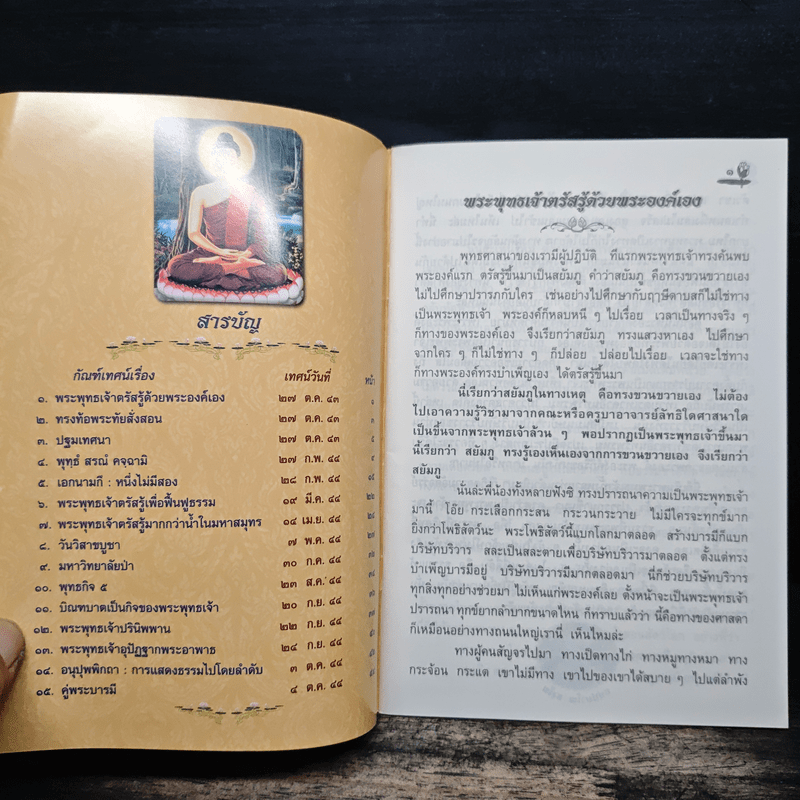 สารบัญ
กัณฑ์เทศน์เรื่อง เทศน์วันที่ หน้า
๑. พระพุทธเจ้าตรัสรู้ด้วยพระองค์เอง ๒๗ ต.ค. ๔๓ ๑
๒. ทรงท้อพระทัยสั่งสอน ๒๗ ต.ค. ๔๓
๓. ปฐมเทศนา ๒๗ ต.ค. ๔๓
๔. พุทฺธํ สรณํ คจฺฉามิ ๒๗ ก.พ. ๔๔
๕. เอกนามกึ : หนึ่งไม่มีสอง ๒๘ ก.พ. ๔๔
๖. พระพุทธเจ้าตรัสรู้เพื่อฟื้นฟูธรรม ๑๙ มี.ค. ๔๔
๗. พระพุทธเจ้าตรัสรู้มากกว่าน้ำในมหาสมุทร ๑๔ เม.ย. ๔๔
๘. วันวิสาขบูชา ๗ พ.ค. ๔๔
๙. มหาวิทยาลัยป่า ๓๐ ก.ค. ๔๔
๑๐. พุทธกิจ ๕ ๒๓ ส.ค. ๔๔
๑๑. บิณฑบาตเป็นกิจของพระพุทธเจ้า ๒๐ ก.ย. ๔๔
๑๒. พระพุทธเจ้าปรินิพพาน ๒๒ ก.ย. ๔๔
๑๓. พระพุทธเจ้าอุปัฏฐากพระอาพาธ ๒๔ ก.ย. ๔๔
๑๔. อนุปุพพิกถา : การแสดงธรรมไปโดยลำดับ ๓ ต.ค. ๔๔
๑๕. คู่พระบารมี ๔ ต.ค. ๔๔
๑
พระพุทธเจ้าตรัสรู้ด้วยพระองค์เอง
พุทธศาสนาของเรามีผู้ปฏิบัติ ที่แรกพระพุทธเจ้าทรงค้นพบ
พระองค์แรก ตรัสรู้ขึ้นมาเป็นสยัมภู คำว่าสยัมภู คือทรงขวนขวายเอง
ไม่ไปศึกษาปรารภกับใคร เช่นอย่างไปศึกษากับฤๅษีดาบสก็ไม่ใช่ทาง
เป็นพระพุทธเจ้า พระองค์ก็หลบหนี ๆ ไปเรื่อย เวลาเป็นทางจริง ๆ
ก็ทางของพระองค์เอง จึงเรียกว่าสยัมภู ทรงแสวงหาเอง ไปศึกษา
จากใคร ๆ ก็ไม่ใช่ทาง ๆ ก็ปล่อย ปล่อยไปเรื่อย เวลาจะใช่ทาง
ก็ทางพระองค์ทรงบำเพ็ญเอง ได้ตรัสรู้ขึ้นมา
นี่เรียกว่าสยัมภูในทางเหตุ คือทรงขวนขวายเอง ไม่ต้อง
ไปเอาความรู้วิชามาจากคณะหรือครูบาอาจารย์ลัทธิใดศาสนาใด
เป็นขึ้นจากพระพุทธเจ้าล้วน ๆ พอปรากฏเป็นพระพุทธเจ้าขึ้นมา
นี้เรียกว่า สยัมภู ทรงรู้เองเห็นเองจากการขวนขวายเอง จึงเรียกว่า
สยัมภู
นั่นล่ะพี่น้องทั้งหลายฟังซิ ทรงปรารถนาความเป็นพระพุทธเจ้า
มานี้ โอ๊ย กระเสือกกระสน กระวนกระวาย ไม่มีใครจะทุกข์มาก
ยิ่งกว่าโพธิสัตว์นะ พระโพธิสัตว์นี้แบกโลกมาตลอด สร้างบารมีก็แบก
บริษัทบริวาร สละเป็นสละตายเพื่อบริษัทบริวารมาตลอด ตั้งแต่ทรง
บำเพ็ญบารมีอยู่ บริษัทบริวารมีมากตลอดมา นี่ก็ช่วยบริษัทบริวาร
ทุกสิ่งทุกอย่างช่วยมา ไม่เห็นแก่พระองค์เลย ตั้งหน้าจะเป็นพระพุทธเจ้า
ปรารถนา ทุกข์ยากลำบากขนาดไหน ก็ทราบแล้วว่า นี้คือทางศาสดา
ก็เหมือนอย่างทางถนนใหญ่เรานี้ เห็นไหมล่ะ
ทางผู้คนสัญจรไปมา ทางเป็ดทางไก่ ทางหมูทางหมา ทาง
กระจ้อน กระแต เขาไม่มีทาง เขาไปของเขาได้สบาย ๆ ไปแต่ลำพัง